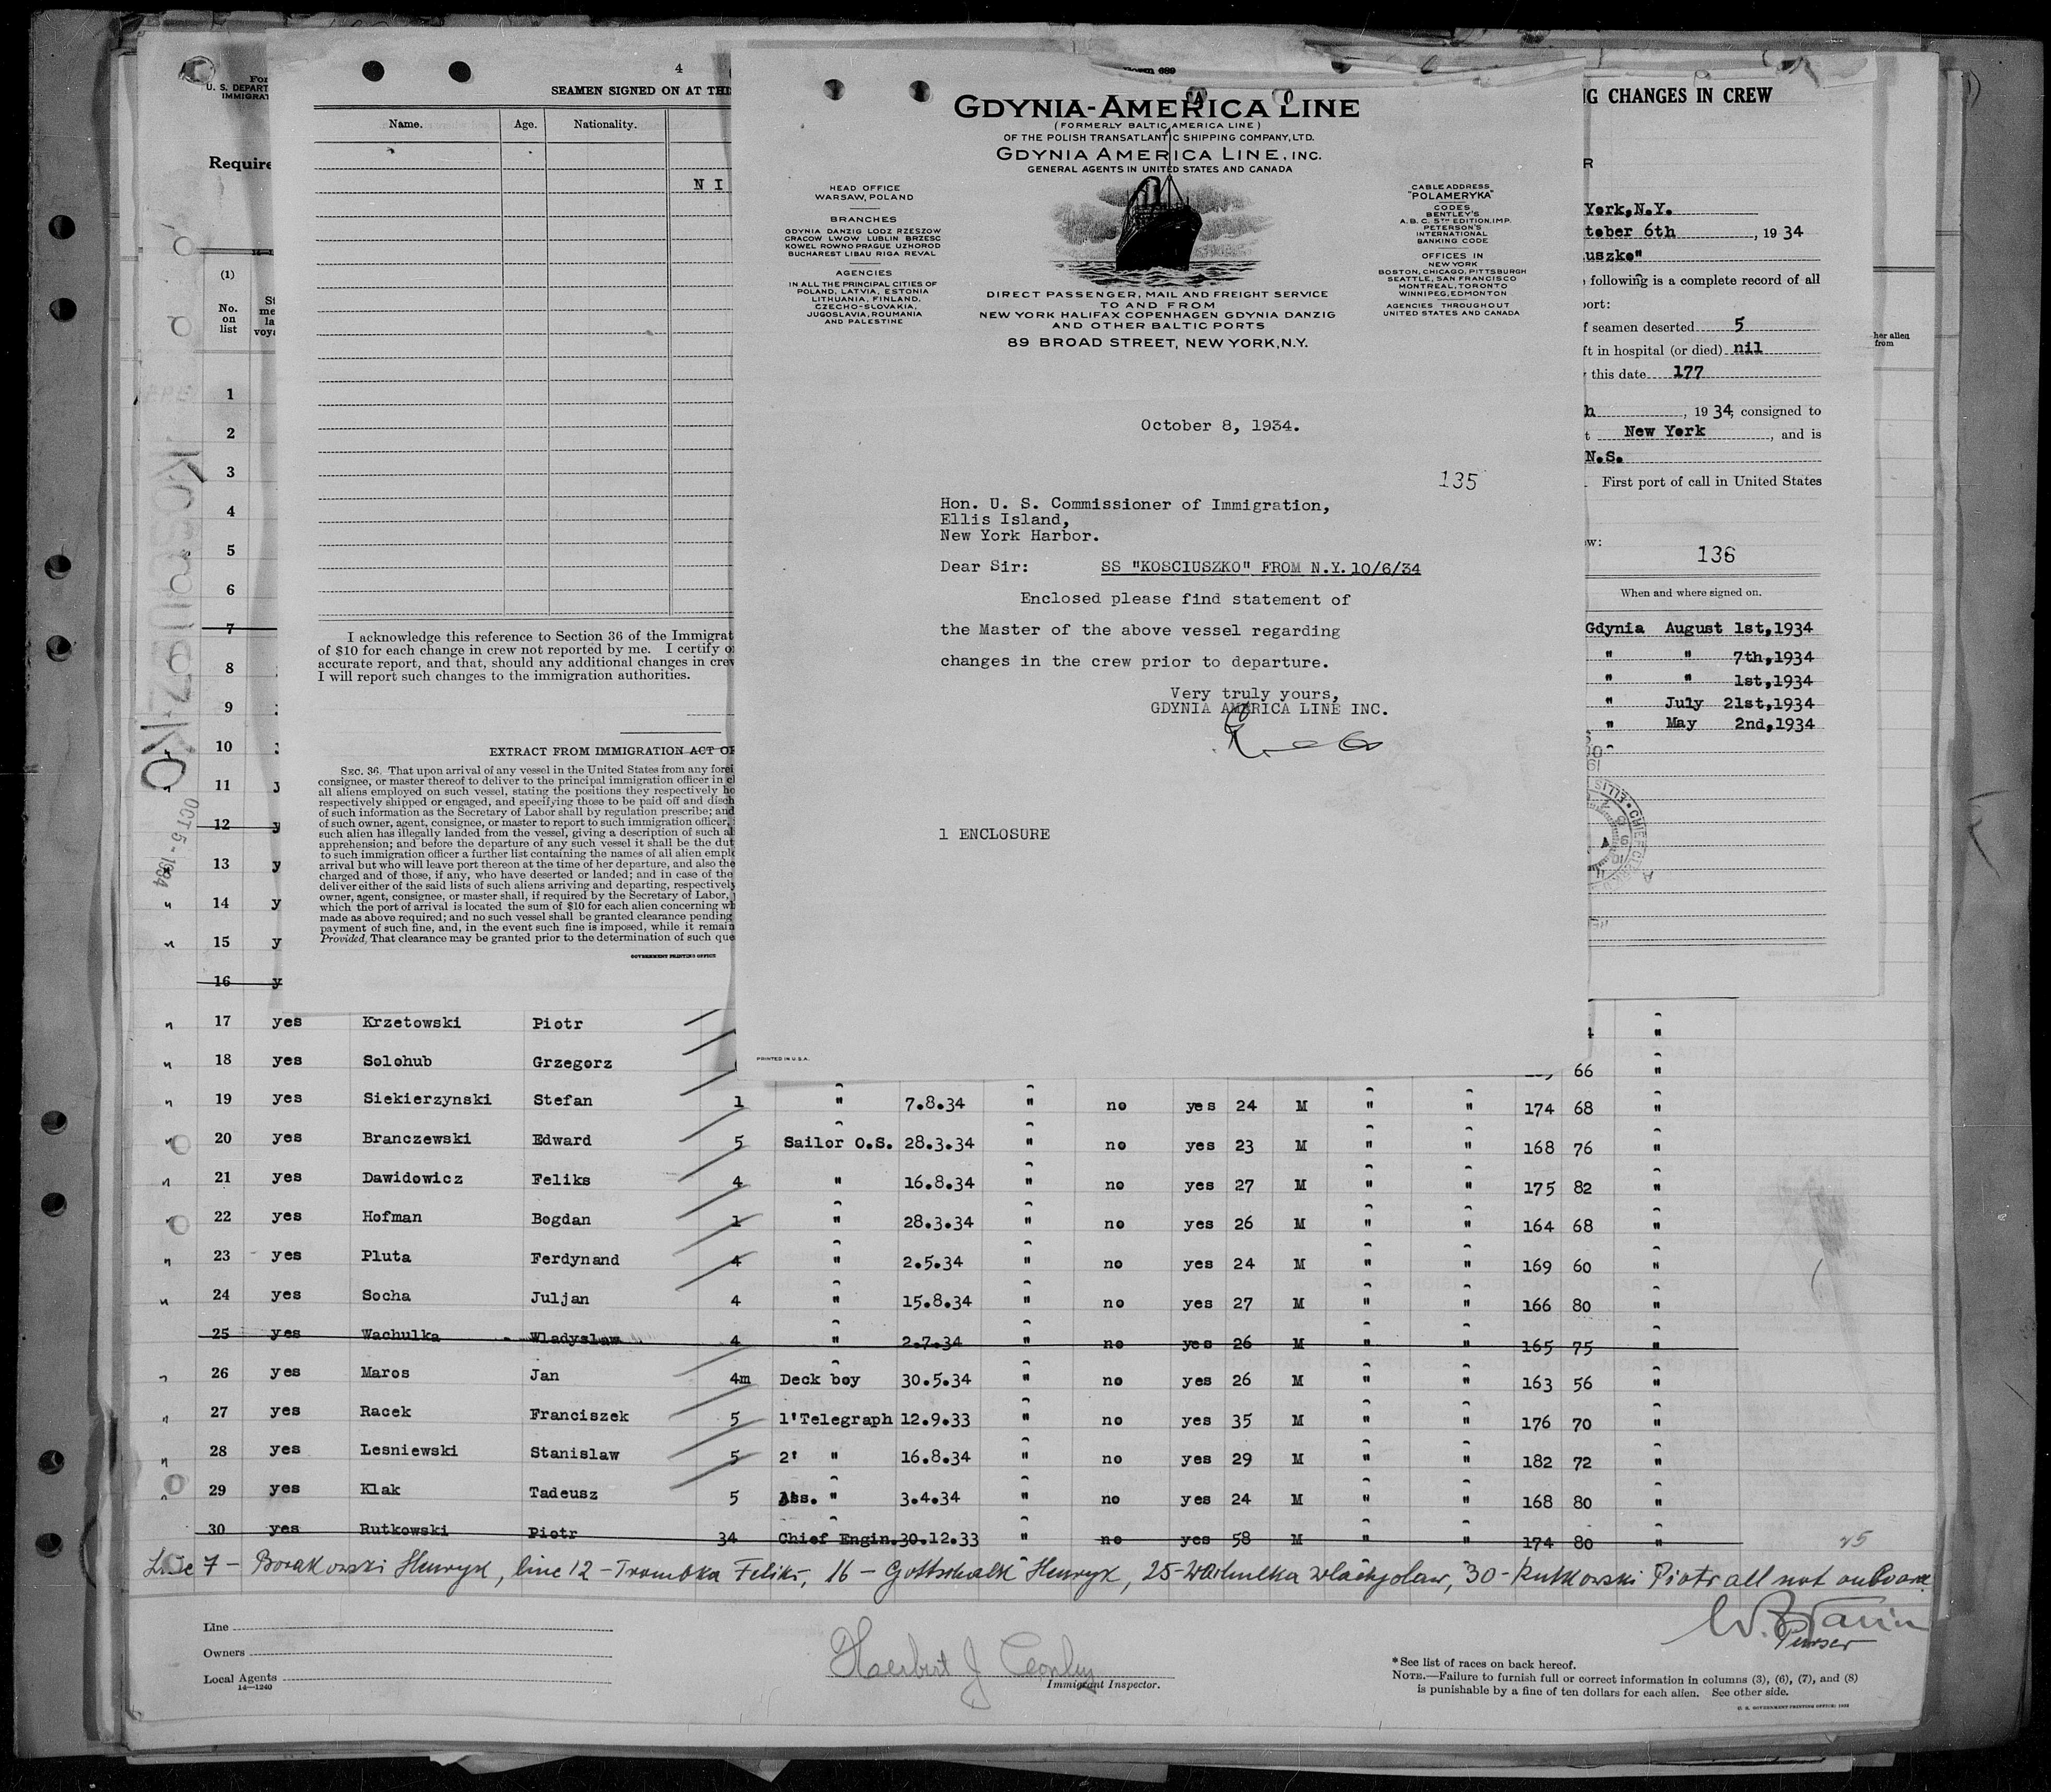 For
U. S. DEPART
IMMIGRAT
Require
(1)
No.
on
list
1
2
3
4
5
6
7
8
9
10
11
12 y
13 y
14 y
15 y
16 y
KOSCIUSZKO
OCT 5 - 1934
4
SEAMEN SIGNED ON AT THI
Name. Age. Nationality.
N I
I acknowledge this reference to Section 36 of the Immigrat
of $10 for each change in crew not reported by me. I certify
accurate report, and that, should any additional changes in crew
I will report such changes to the immigration authorities.
EXTRACT FROM IMMIGRATION ACT OF
SEC. 36. That upon arrival of any vessel in the United States from any forei
consignee, or master thereof to deliver to the principal immigration officer in c
all aliens employed on such vessel, stating the positions they respectively ho
respectively shipped or engaged, and specifying those to be paid off and disch
of such information as the Secretary of Labor shall by regulation prescribe; and
of such owner, agent, consignee, or master to report to such immigration officer,
such alien has illegally landed from the vessel, giving a description of such al
apprehension; and before the departure of any such vessel it shall be the dut
to such immigration officer a further list containing the names of all alien empl
arrival but who will leave port thereon at the time of her departure, and also the
charged and of those, if any, who have deserted or landed; and in case of the
deliver either of the said lists of such aliens arriving and departing, respectively
owner, agent, consignee, or master shall, if required by the Secretary of Labor,
which the port of arrival is located the sum of $10 for each alien concerning wh
made as above required; and no such vessel shall be granted clearance pending
payment of such fine, and, in the event such fine is imposed, while it remain
Provided, That clearance may be granted prior to the determination of such que
GOVERNMENT PRINTING OFFICE
689
GDYNIA-AMERICA LINE
(FORMERLY BALTIC AMERICA LINE)
OF THE POLISH TRANSATLANTIC SHIPPING COMPANY, LTD.
GDYNIA AMERICA LINE, INC.
GENERAL AGENTS IN UNITED STATES AND CANADA
HEAD OFFICE
WARSAW, POLAND
BRANCHES
GDYNIA DANZIG LODZ RZESZOW
CRACOW LWOW LUBLIN BRZESC
KOWEL ROWNO PRAGUE UZHOROD
BUCHAREST LIBAU RIGA REVAL
AGENCIES
IN ALL THE PRINCIPAL CITIES OF
POLAND, LATVIA, ESTONIA
LITHUANIA, FINLAND,
CZECHO-SLOVAKIA,
JUGOSLAVIA, ROUMANIA
AND PALESTINE
CABLE ADDRESS
"POLAMERYKA"
CODES
BENTLEY'S
A.B.C. 5TH EDITION, IMP.
PETERSON'S
INTERNATIONAL
BANKING CODE
OFFICES IN
NEW YORK
BOSTON, CHICAGO, PITTSBURGH
SEATTLE, SAN FRANCISCO
MONTREAL, TORONTO
WINNIPEG, EDMONTON
AGENCIES THROUGHOUT
UNITED STATES AND CANADA
DIRECT PASSENGER, MAIL AND FREIGHT SERVICE
TO AND FROM
NEW YORK HALIFAX COPENHAGEN GDYNIA DANZIG
AND OTHER BALTIC PORTS
89 BROAD STREET, NEW YORK, N.Y.
October 8, 1934.
135
Hon. U. S. Commissioner of Immigration,
Ellis Island,
New York Harbor.
Dear Sir: SS "KOSCIUSZKO" FROM N.Y. 10/6/34
Enclosed please find statement of
the Master of the above vessel regarding
changes in the crew prior to departure.
Very truly yours,
GDYNIA AMERICA LINE INC.
1 ENCLOSURE
PRINTED IN U.S.A.
G CHANGES IN CREW
R
York,N.Y.
tober 6th , 19 34
uszko"
following is a complete record of all
port:
f seamen deserted 5
ft in hospital (or died) nil
this date 177
h , 19 34, consigned to
t New York , and is
N.S.
First port of call in United States
w:
136
When and where signed on.
Gdynia August 1st,1934
" " 7th,1934
" " 1st,1934
" July 21st,1934
" May 2nd,1934
her alien
from
17 yes Krzetowski Piotr "
18 yes Solohub Grzegorz 66 "
19 yes Siekierzynski Stefan 1 " 7.8.34 " no yes 24 M " " 174 68 "
20 yes Branczewski Edward 5 Sailor O.S. 28.3.34 " no yes 23 M " " 168 76 "
21 yes Dawidowicz Feliks 4 " 16.8.34 " no yes 27 M " " 175 82 "
22 yes Hofman Bogdan 1 " 28.3.34 " no yes 26 M " " 164 68 "
23 yes Pluta Ferdynand 4 " 2.5.34 " no yes 24 M " " 169 60 "
24 yes Socha Juljan 4 " 15.8.34 " no yes 27 M " " 166 80 "
25 yes Wachulka Wladyslaw 4 " 2.7.34 " no yes 26 M " " 165 75 "
26 yes Maros Jan 4m Deck boy 30.5.34 " no yes 26 M " " 163 56 "
27 yes Racek Franciszek 5 1'Telegraph 12.9.33 " no yes 35 M " " 176 70 "
28 yes Lesniewski Stanislaw 5 2' " 16.8.34 " no yes 29 M " " 182 72 "
29 yes Klak Tadeusz 5 Ass. " 3.4.34 " no yes 24 M " " 168 80 "
30 yes Rutkowski Piotr 34 Chief Engin. 30.12.33 " no yes 58 M " " 174 80 "
Line 7 - Borakowski Henryk, line 12 - Trombka Feliks, 16 - Gottschalk Henryk, 25 - Wachulka Wladyslaw, 30 - Rutkowski Piotr all not on board
Purser
Line
Owners
Local Agents
14-1240
Herbert J Conley
Immigrant Inspector.
*See list of races on back hereof.
NOTE.—Failure to furnish full or correct information in columns (3), (6), (7), and (8)
is punishable by a fine of ten dollars for each alien. See other side.
U. S. GOVERNMENT PRINTING OFFICE: 1932